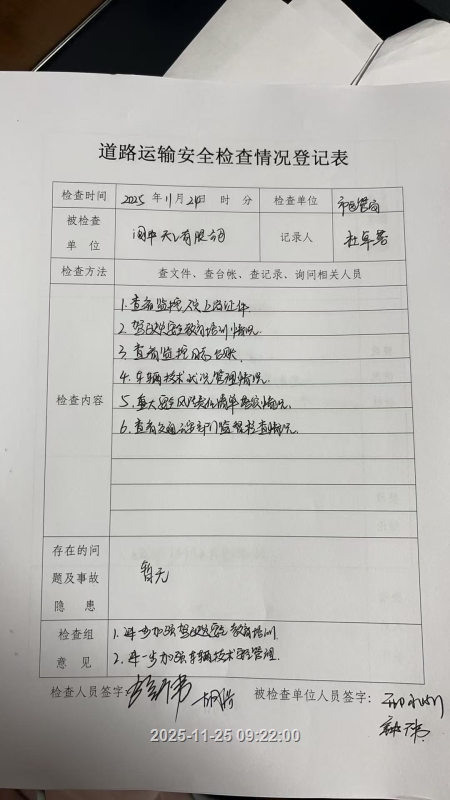 道路运输安全检查情况登记表
检查时间 2025 年 11 月 24日 时 分 检查单位 市运管局
被检查
单 位 记录人
检查方法 查文件、查台帐、查记录、询问相关人员
检查内容
1. 查看监控人员上岗证件.
2. 驾驶员安全教育培训情况.
3. 查看监控日志台账.
4. 车辆技术状况管理情况.
5. 重大安全风险责任清单落实情况.
6. 查看交通运输部门监督检查情况.
存在的问
题及事故
隐 患
暂无
检查组
意 见
1. 进一步加强驾驶员安全教育培训.
2. 进一步加强车辆技术安全管理.
检查人员签字: 被检查单位人员签字:
2025-11-25 09:22:00